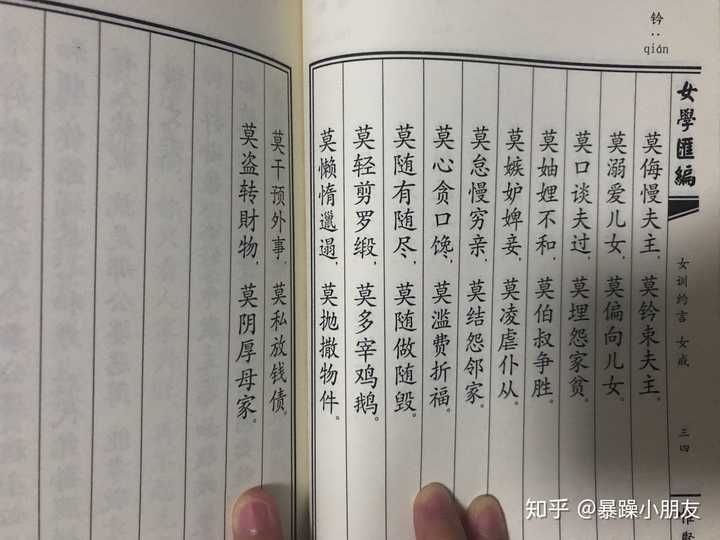 钤：qián
女學匯編
女训约言 女戒
三四
莫侮慢夫主，莫钤束夫主。
莫溺爱儿女，莫偏向儿女。
莫口谈夫过，莫埋怨家贫。
莫妯娌不和，莫伯叔争胜。
莫嫉妒婢妾，莫凌虐仆从。
莫怠慢穷亲，莫结怨邻家。
莫心贪口馋，莫滥费折福。
莫随有随尽，莫随做随毁。
莫轻剪罗缎，莫多宰鸡鹅。
莫懒惰邋遢，莫抛撒物件。
莫干预外事，莫私放钱债。
莫盗转財物，莫阴厚母家。
知乎 @暴躁小朋友